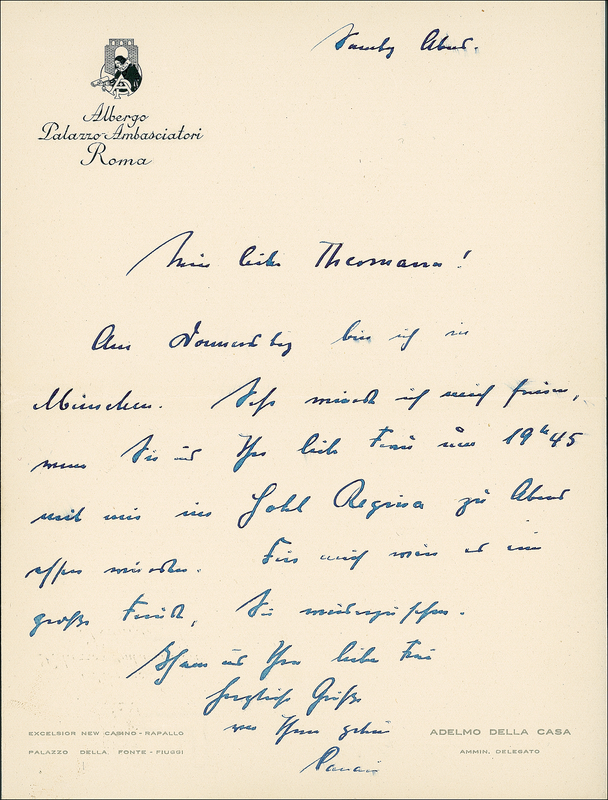 Samstag Abend.
Albergo
Palazzo-Ambasciatori
Roma
Mein lieber Theomann!
Am Donnerstag bin ich in
München. Sehr würde ich mich freuen,
wenn Sie und Ihre liebe Frau um 19h45
mit mir im Hotel Regina zu Abend
essen würden. Für mich wäre es eine
große Freude, Sie wiederzusehen.
Ihnen und Ihrer lieben Frau
herzliche Grüße
von Ihrem
EXCELSIOR NEW CASINO - RAPALLO
PALAZZO DELLA FONTE - FIUGGI
ADELMO DELLA CASA
AMMIN. DELEGATO